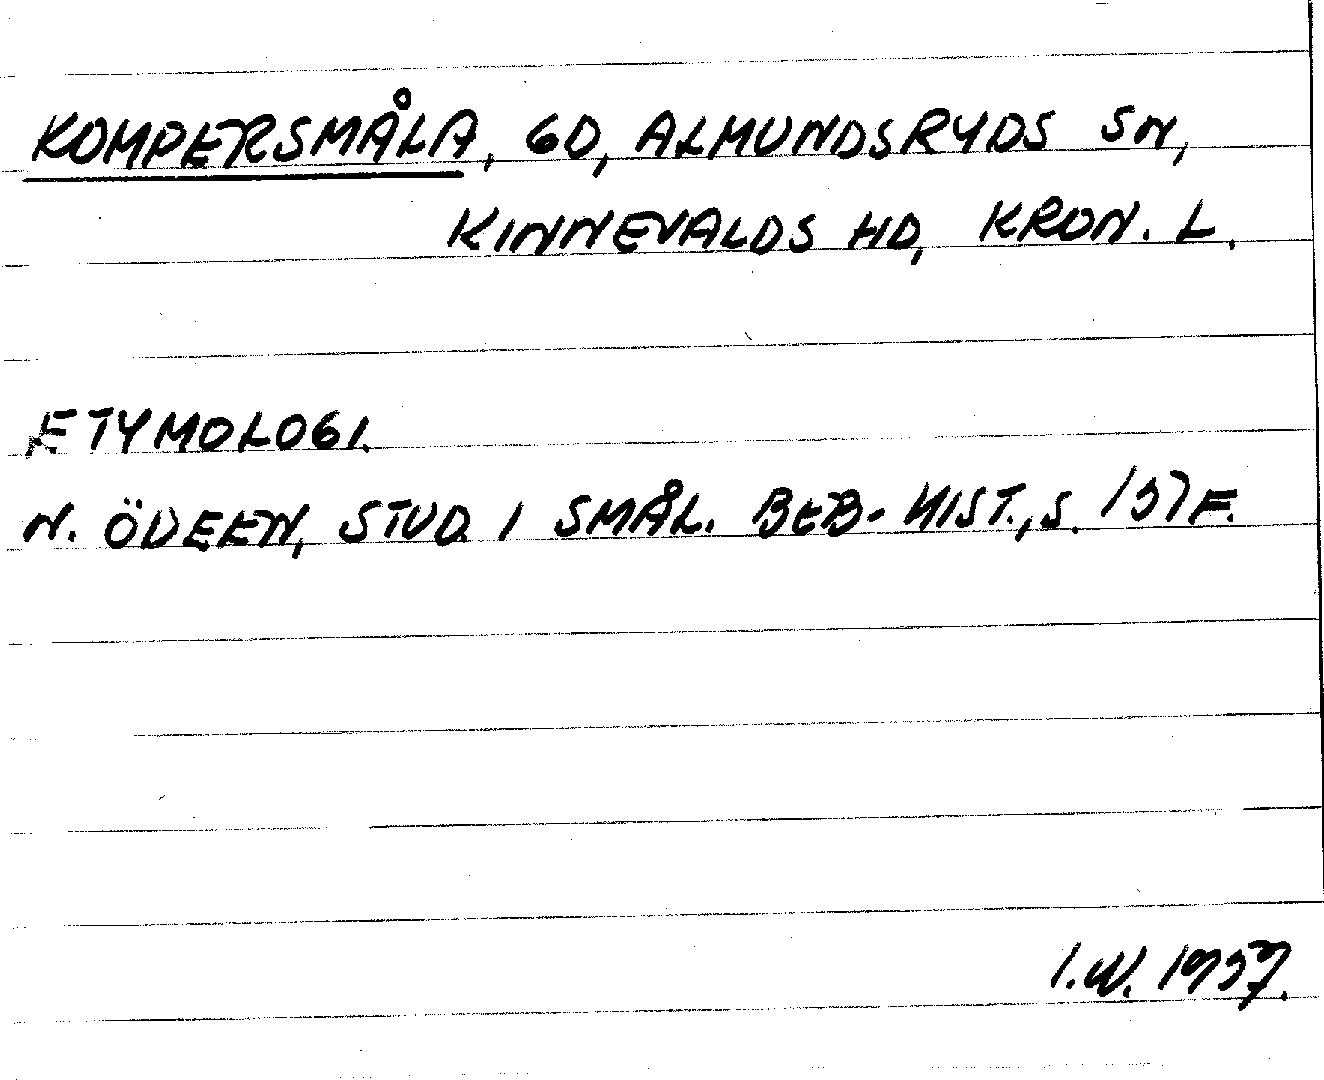 KOMPERSMÅLA, GD, ALMUNDSRYDS SN,
KINNEVALDS HD, KRON. L.
ETYMOLOGI.
N. ÖDEEN, STUD. I SMÅL. BEB-HIST., S. 137 F.
I.W. 1937.